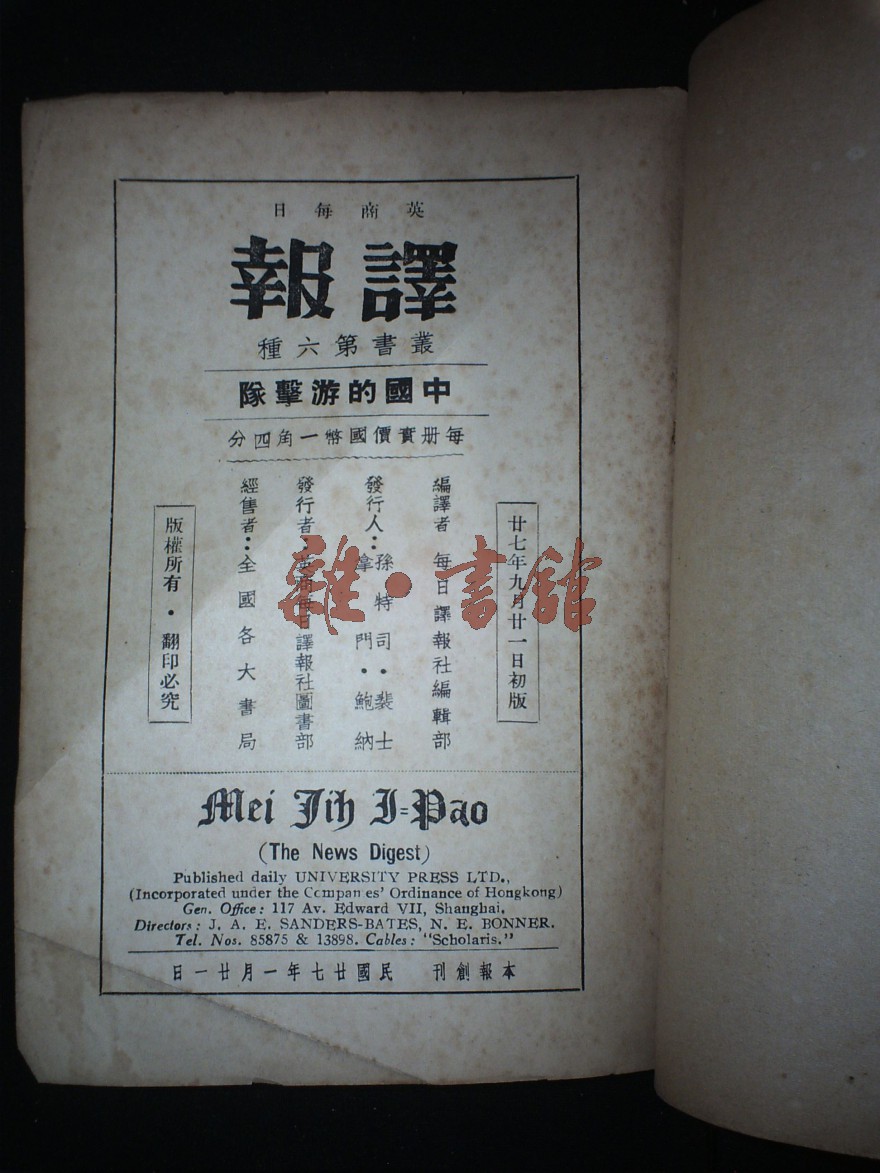 英商每日
譯報
叢書第六種
中國的游擊隊
每册實價國幣一角四分
廿七年九月廿一日初版
編譯者 每日譯報社編輯部
發行人：孫特司·裴士
拿門·鮑納
發行者：英商每日譯報社圖書部
經售者：全國各大書局
版權所有·翻印必究
雜·書館
Mei Jih I=Pao
(The News Digest)
Published daily UNIVERSITY PRESS LTD.,
(Incorporated under the Companies' Ordinance of Hongkong)
Gen. Office: 117 Av. Edward VII, Shanghai.
Directors: J. A. E. SANDERS-BATES, N. E. BONNER.
Tel. Nos. 85875 & 13898. Cables: "Scholaris."
本報創刊 民國廿七年一月廿一日